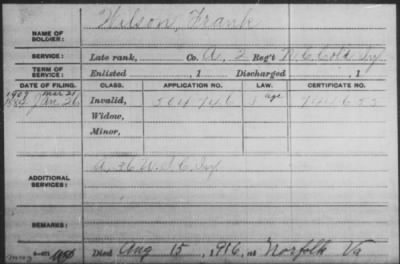 Wilson, Frank
NAME OF SOLDIER:
SERVICE: Late rank, Co. A, 2 Reg't N.C. Cold. Inf
TERM OF SERVICE: Enlisted , 1 Discharged , 1
DATE OF FILING. CLASS. APPLICATION NO. LAW. CERTIFICATE NO.
Jan 26 Invalid, age
Widow,
Minor,
ADDITIONAL SERVICES: A. 36 U.S.C. Inf
REMARKS:
Died Aug 15, 1916, at Norfolk Va